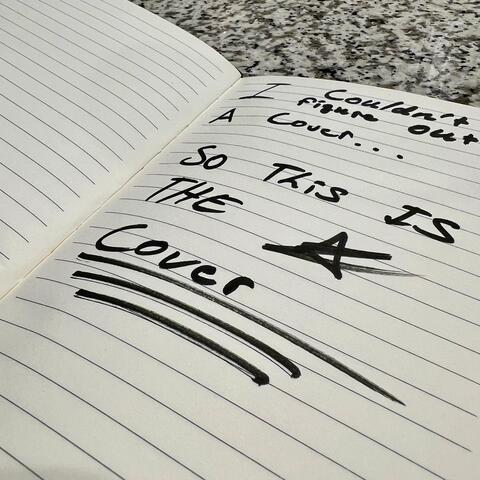 I Couldn't
figure out
A Cover...
So This IS
THE
Cover